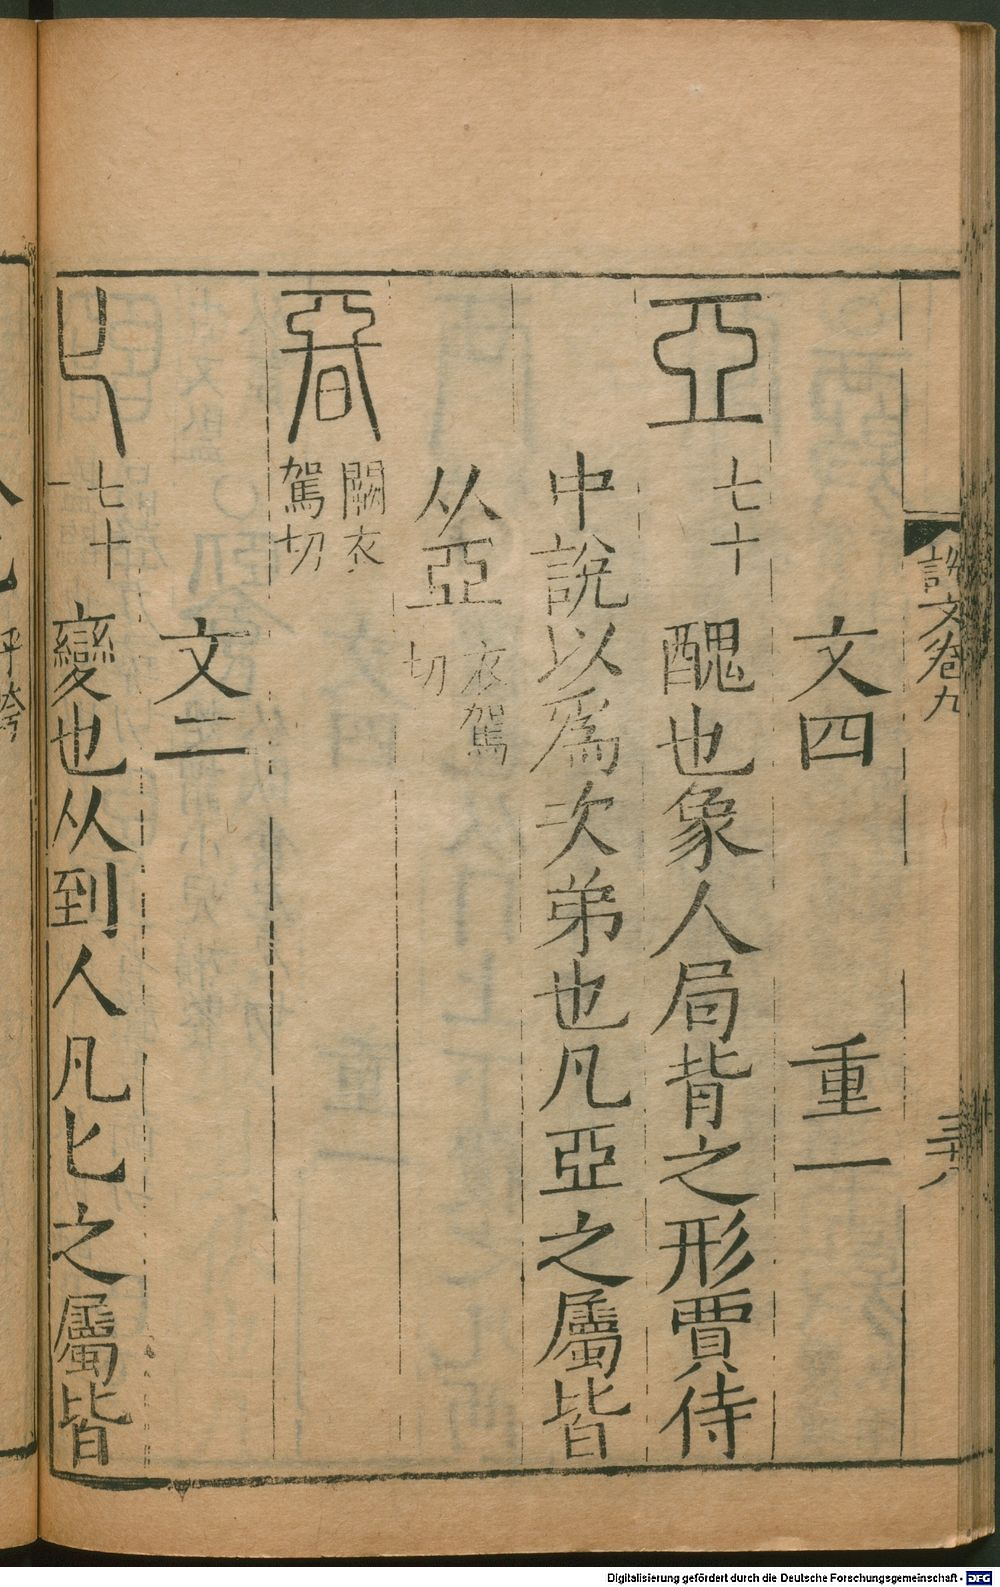 說文卷九
三十八
文四 重一
亞 七十 醜也象人局背之形賈侍
中說以爲次弟也凡亞之屬皆
从亞 衣駕切
𣉩 闕衣駕切
文二
匕 七十一 變也从到人凡匕之屬皆
Digitalisierung gefördert durch die Deutsche Forschungsgemeinschaft - DFG